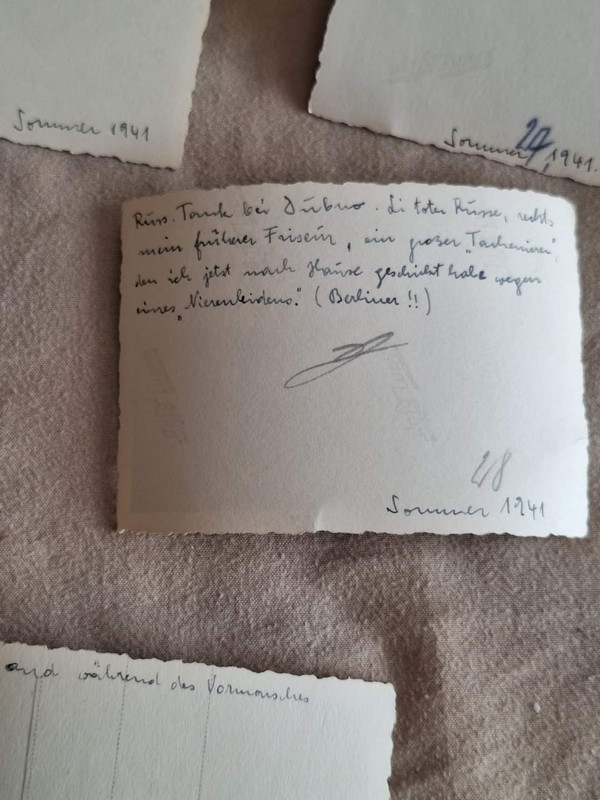 Sommer 1941
Sommer 1941.
27
Russ. Tank bei Dubno. Li toter Russe, rechts
mein früherer Friseur, ein großer "Tachenierer",
den ich jetzt nach Hause geschickt habe wegen
eines "Nierenleidens." (Berliner!!)
28
Sommer 1941
während des Vormarsches